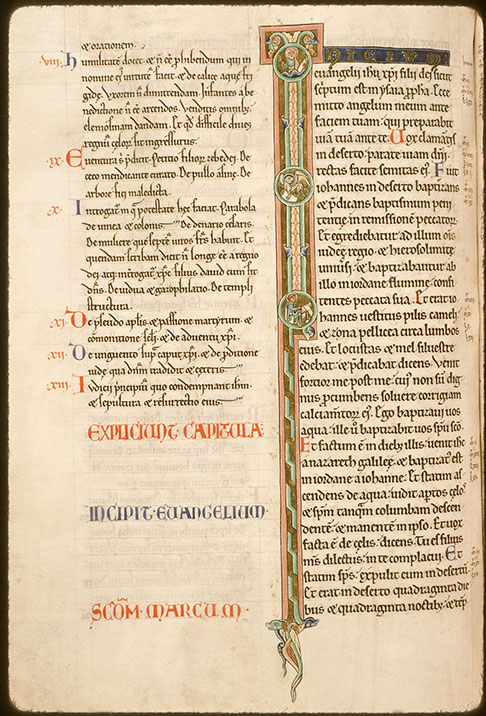 & orationem.
viii. humilitate docet. & ñ eē phibendum qui in
nomine ei uirtutē facit. & de calice aquę fri
gidę. Vxorem ñ dimittendam. Infantes a be
nedictione ñ eē arcendos. Venditis omnib;
elemosinam dandam. Et qđ difficile diues
regnū cęlor̄ sit ingressurus.
ix. Euentura s̄ p̄dicit. Petitio filior̄ zebedei. De
ceco mendicante curato. De pullo asine. De
arbore fici maledicta.
x. Interrogat̄ in q̄ potestate hęc faciat. Parabola
de uinea & colonis. De denario cesaris.
De muliere quę septē uiros fr̄s habuit. Et
quendam scribam dicit ñ longe eē a regno
dei. atq; interrogat. xp̄c filius dauid cum sit
dn̄s. De uidua & gazophilatio. De templi
structura.
xi. De pseudo aplis & passione martyrum. &
comonitione scī. & de aduentu xp̄i.
xii. De unguento sup̄ caput xp̄i. & de p̄ditione
iude qua dn̄m tradidit & ceteris
xiii. Iudicii principiū quo condempnant ihm̄.
& sepultura & resurrectio eius
EXPLICIUNT CAPITULA.
INCIPIT EUANGELIUM
SC̄DM MARCUM
INICIVM
euangelii ihu xp̄i filii dei. sicut
scriptum est in ysaia p̄pha. Ecce
mitto angelum meum ante
faciem tuam. qui preparabit
uiā tuā ante te. Vox clamātis
in deserto. parate uiam dn̄i.
rectas facite semitas ei. Fuit
iohannes in deserto baptizans
& p̄dicans baptismum peni
tentie in remissionē peccator̄.
Et egrediebatur ad illum oīs
iudeę regio. & hierosolimite
uniuersi. & baptizabantur ab
illo in iordane flumine. confi
tentes peccata sua. Et erat io
hannes uestitus pilis cameli.
& zona pellicea circa lumbos
eius. Et locustas & mel siluestre
edebat. & p̄dicabat dicens. Venit
fortior me post me. cui ñ sū dig
nus p̄cumbens soluere corrigiam
calciamtor̄ ei. Ego baptizaui uos
aqua. ille ū baptizabit uos spū sc̄o.
Et factum ē in dieb; illis. uenit ihc
a nazareth galileę. & baptizat̄ est
in iordane a iohanne. Et statim as
cendens de aqua. uidit aptos cęlos
& spm̄ tanq̄m columbam descen
dentē. & manentē in ipso. Et uox
facta ē de cęlis. dicens. Tu es filius
m̄s dilectus. in te complacui. Et
statim sp̄s. expulit eum in desertū.
Et erat in deserto quadraginta die
bus & quadraginta noctib;. & tēp